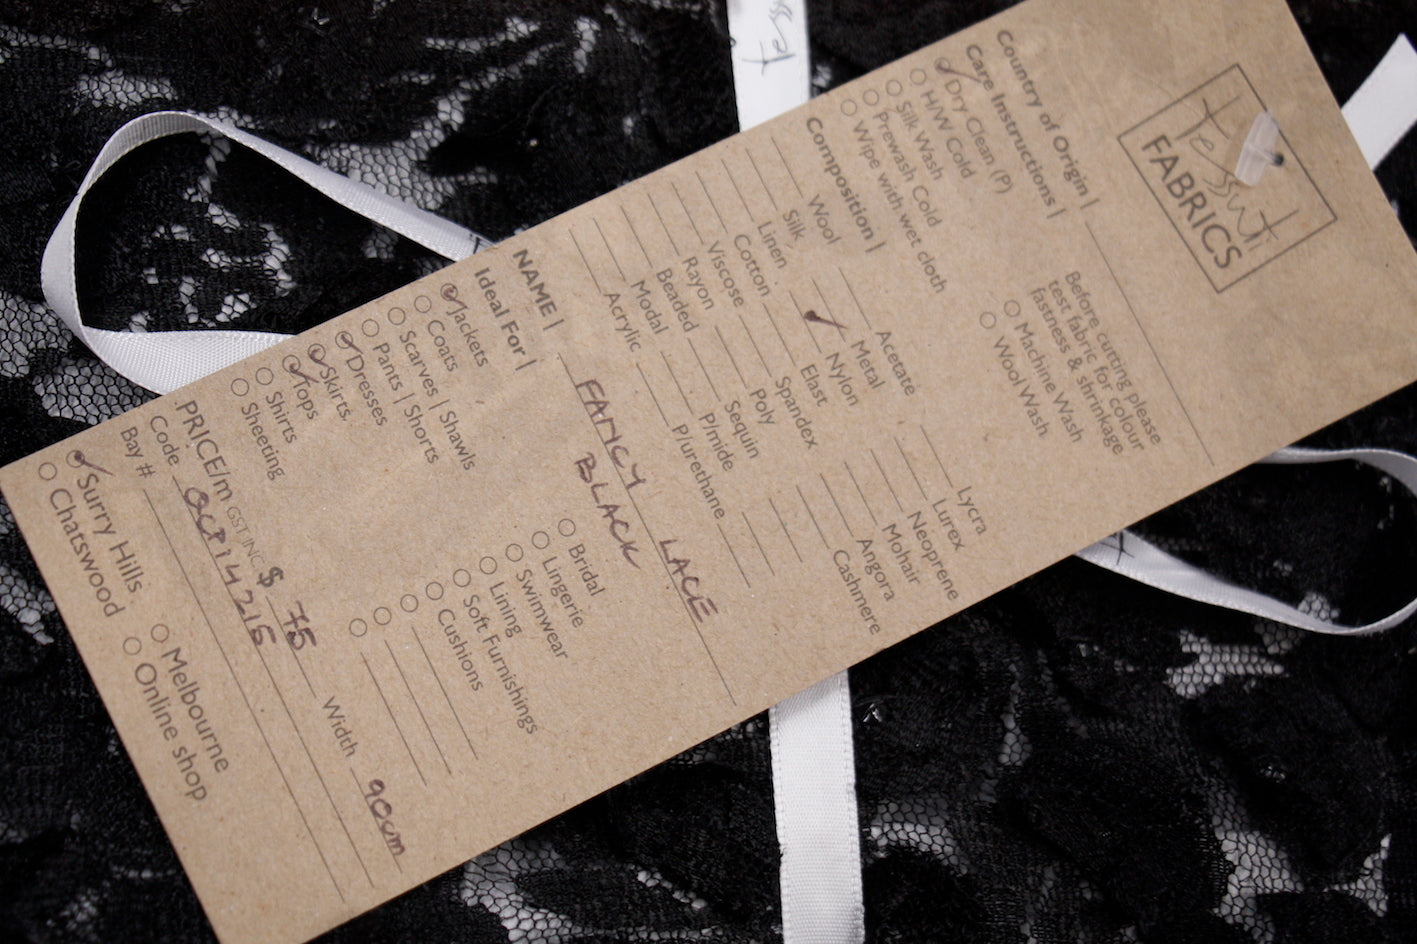 Tessuti
FABRICS
Country of Origin |
Care Instructions |
Dry Clean (P)
H/W Cold
Silk Wash
Prewash Cold
Wipe with wet cloth
Before cutting please
test fabric for colour
fastness & shrinkage
Machine Wash
Wool Wash
Composition |
Wool
Silk
Linen
Cotton
Viscose
Rayon
Beaded
Modal
Acrylic
Acetate
Metal
Nylon
Elast
Spandex
Poly
Sequin
P/mide
P/urethane
Lycra
Lurex
Neoprene
Mohair
Angora
Cashmere
NAME | FANCY LACE
BLACK
Ideal For |
Jackets
Coats
Scarves | Shawls
Pants | Shorts
Dresses
Skirts
Tops
Shirts
Sheeting
Bridal
Lingerie
Swimwear
Lining
Soft Furnishings
Cushions
PRICE/m GST INC $ 75 Width 90cm
Code OCP14215
Bay #
Surry Hills
Chatswood
Melbourne
Online shop
Tess